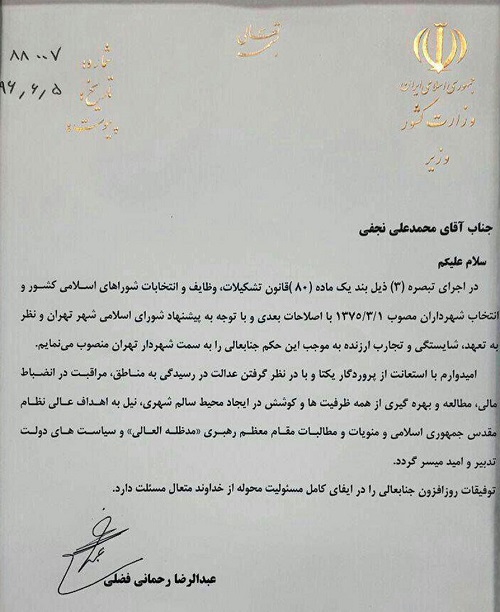 جمهوری اسلامی ایران
وزارت کشور
وزیر
بسمه تعالی
شماره ۸۸۰۰۷
تاریخ ۹۶٫۶٫۵
پیوست
جناب آقای محمدعلی نجفی
سلام علیکم
در اجرای تبصره (۳) ذیل بند یک ماده (۸۰ )قانون تشکیلات، وظایف و انتخابات شوراهای اسلامی کشور و
انتخاب شهرداران مصوب ۱۳۷۵/۳/۱ با اصلاحات بعدی و با توجه به پیشنهاد شورای اسلامی شهر تهران و نظر
به تعهد، شایستگی و تجارب ارزنده به موجب این حکم جنابعالی را به سمت شهردار تهران منصوب می‌نمایم.
امیدوارم با استعانت از پروردگار یکتا و با در نظر گرفتن عدالت در رسیدگی به مناطق، مراقبت در انضباط
مالی، مطالعه و بهره گیری از همه ظرفیت ها و کوشش در ایجاد محیط سالم شهری، نیل به اهداف عالی نظام
مقدس جمهوری اسلامی و منویات و مطالبات مقام معظم رهبری «مدظله العالی» و سیاست های دولت
تدبیر و امید میسر گردد.
توفیقات روزافزون جنابعالی را در ایفای کامل مسئولیت محوله از خداوند متعال مسئلت دارد.
عبدالرضا رحمانی فضلی